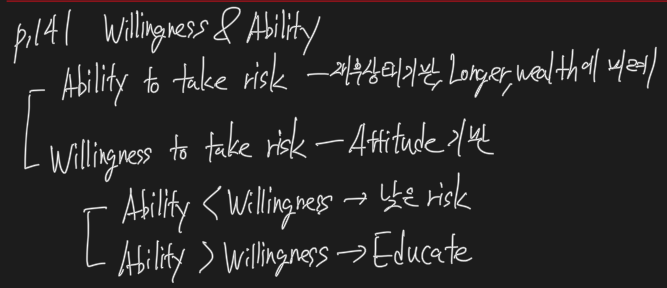 p.141 Willingness & Ability
Ability to take risk — 재무상태기반, Longer, wealth에 비례
Willingness to take risk — Attitude 기반
Ability < Willingness → 낮은 risk
Ability > Willingness → Educate